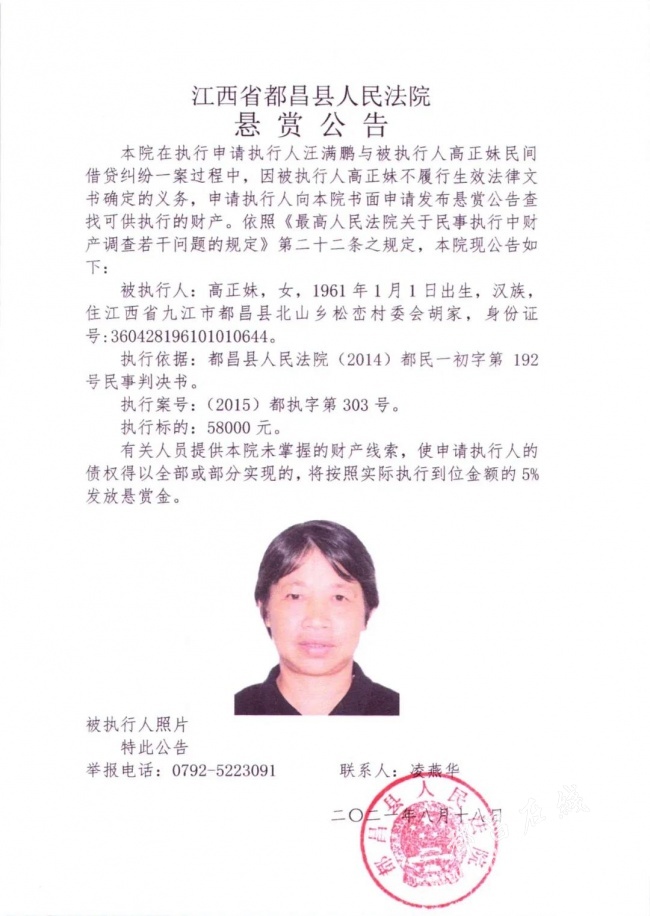 江西省都昌县人民法院
悬赏公告
本院在执行申请执行人汪满鹏与被执行人高正妹民间
借贷纠纷一案过程中，因被执行人高正妹不履行生效法律文
书确定的义务，申请执行人向本院书面申请发布悬赏公告查
找可供执行的财产。依照《最高人民法院关于民事执行中财
产调查若干问题的规定》第二十二条之规定，本院现公告如
下：
被执行人：高正妹，女，1961年1月1日出生，汉族，
住江西省九江市都昌县北山乡松峦村委会胡家，身份证
号:360428196101010644。
执行依据：都昌县人民法院（2014）都民一初字第 192
号民事判决书。
执行案号：（2015）都执字第303号。
执行标的：58000元。
有关人员提供本院未掌握的财产线索，使申请执行人的
债权得以全部或部分实现的，将按照实际执行到位金额的5%
发放悬赏金。
被执行人照片
特此公告
举报电话：0792-5223091 联系人：凌燕华
二〇二一年八月十八日
都昌县人民法院